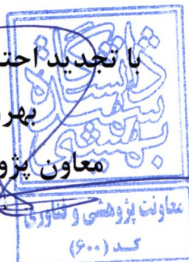 با تجدید احتـ
بهرو
معاون پژو
دانشگاه
شهید
بهشتی
معاونت پژوهشی و فناوری
کد (۶۰۰)